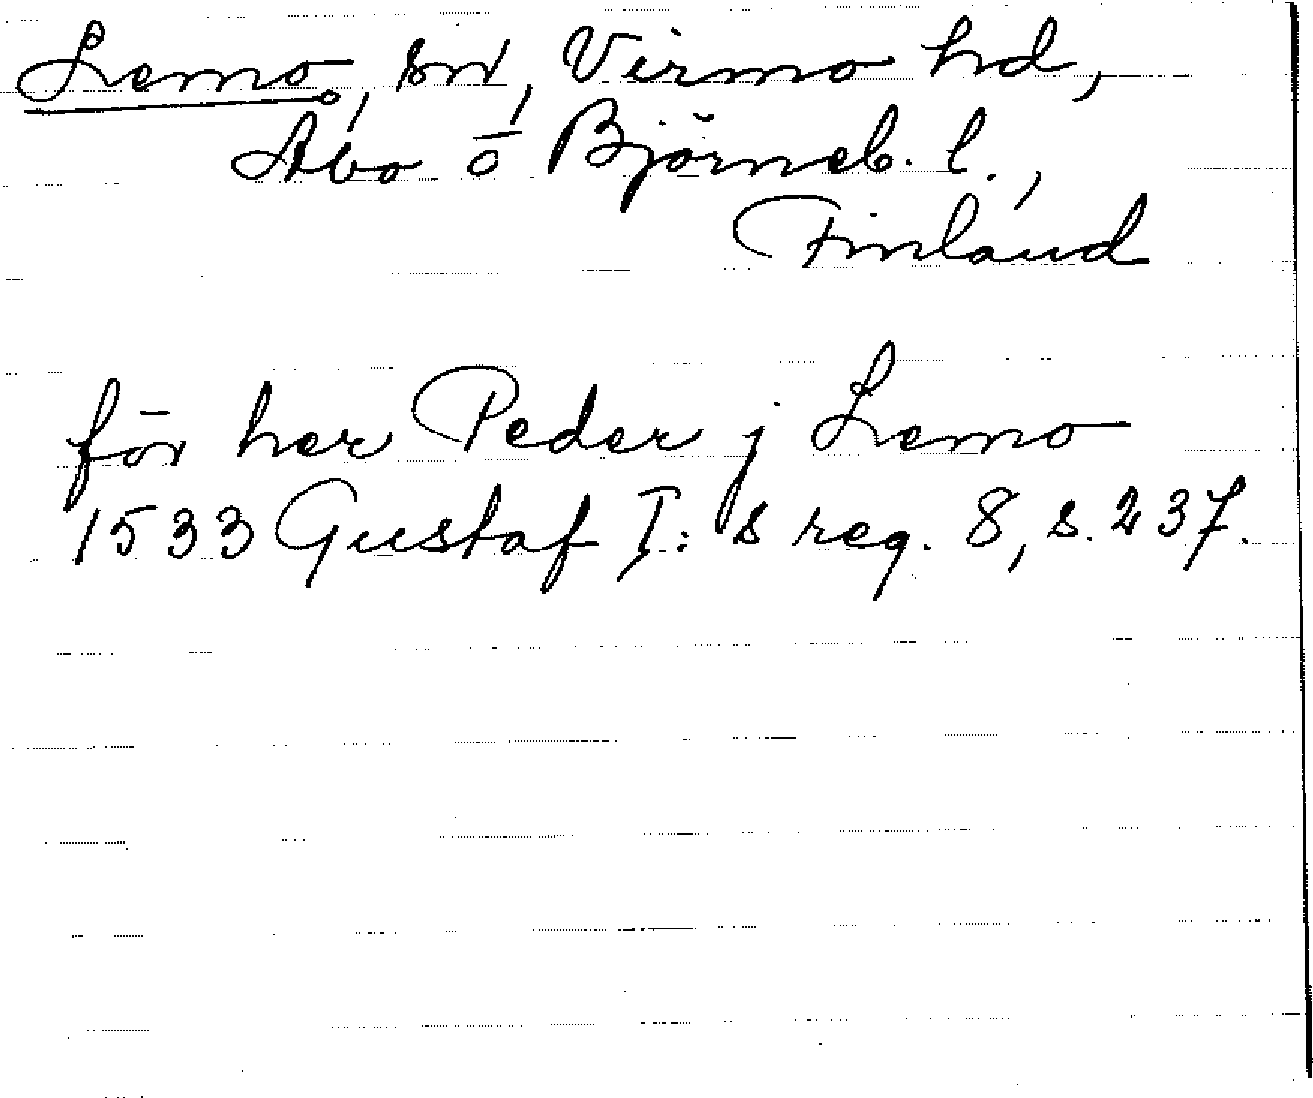 Lemo, sn, Virmo hd,
Åbo o Björneb. l.,
Finland
för her Peder j Lemo
1533 Gustaf I:s reg. 8, s. 237.